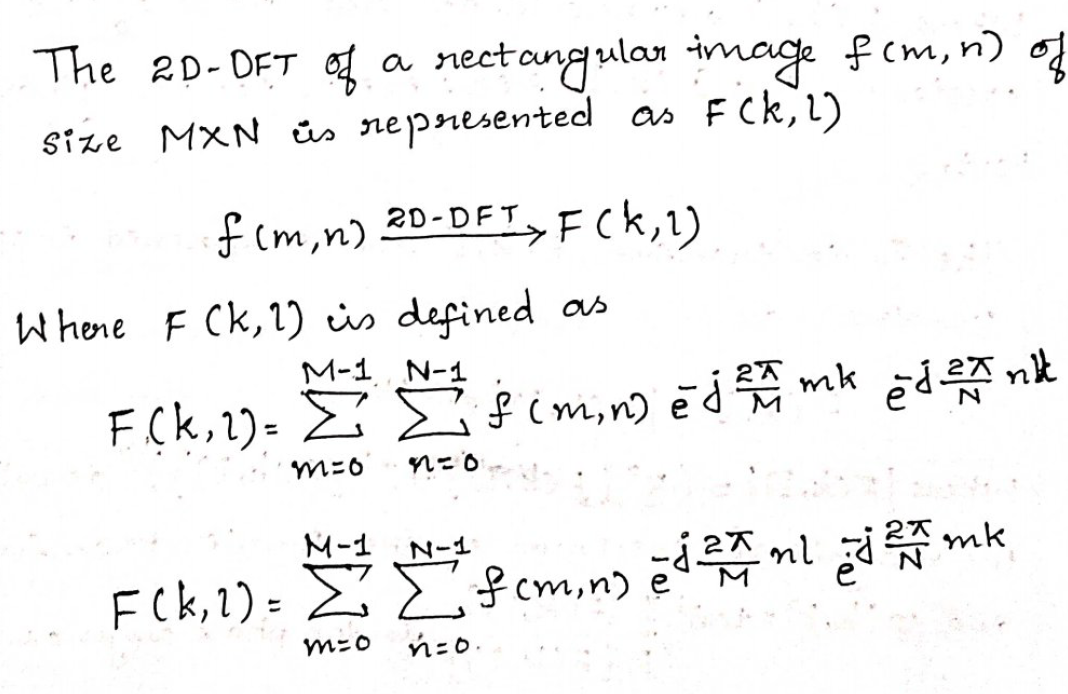 The 2D-DFT of a rectangular image f(m,n) of
size MXN is represented as F(k,l)
f(m,n) 2D-DFT → F(k,l)
Where F(k,l) is defined as
F(k,l) = Σ_{m=0}^{M-1} Σ_{n=0}^{N-1} f(m,n) e^{-j 2π/M mk} e^{-j 2π/N nl}
F(k,l) = Σ_{m=0}^{M-1} Σ_{n=0}^{N-1} f(m,n) e^{-j 2π/M nl} e^{-j 2π/N mk}